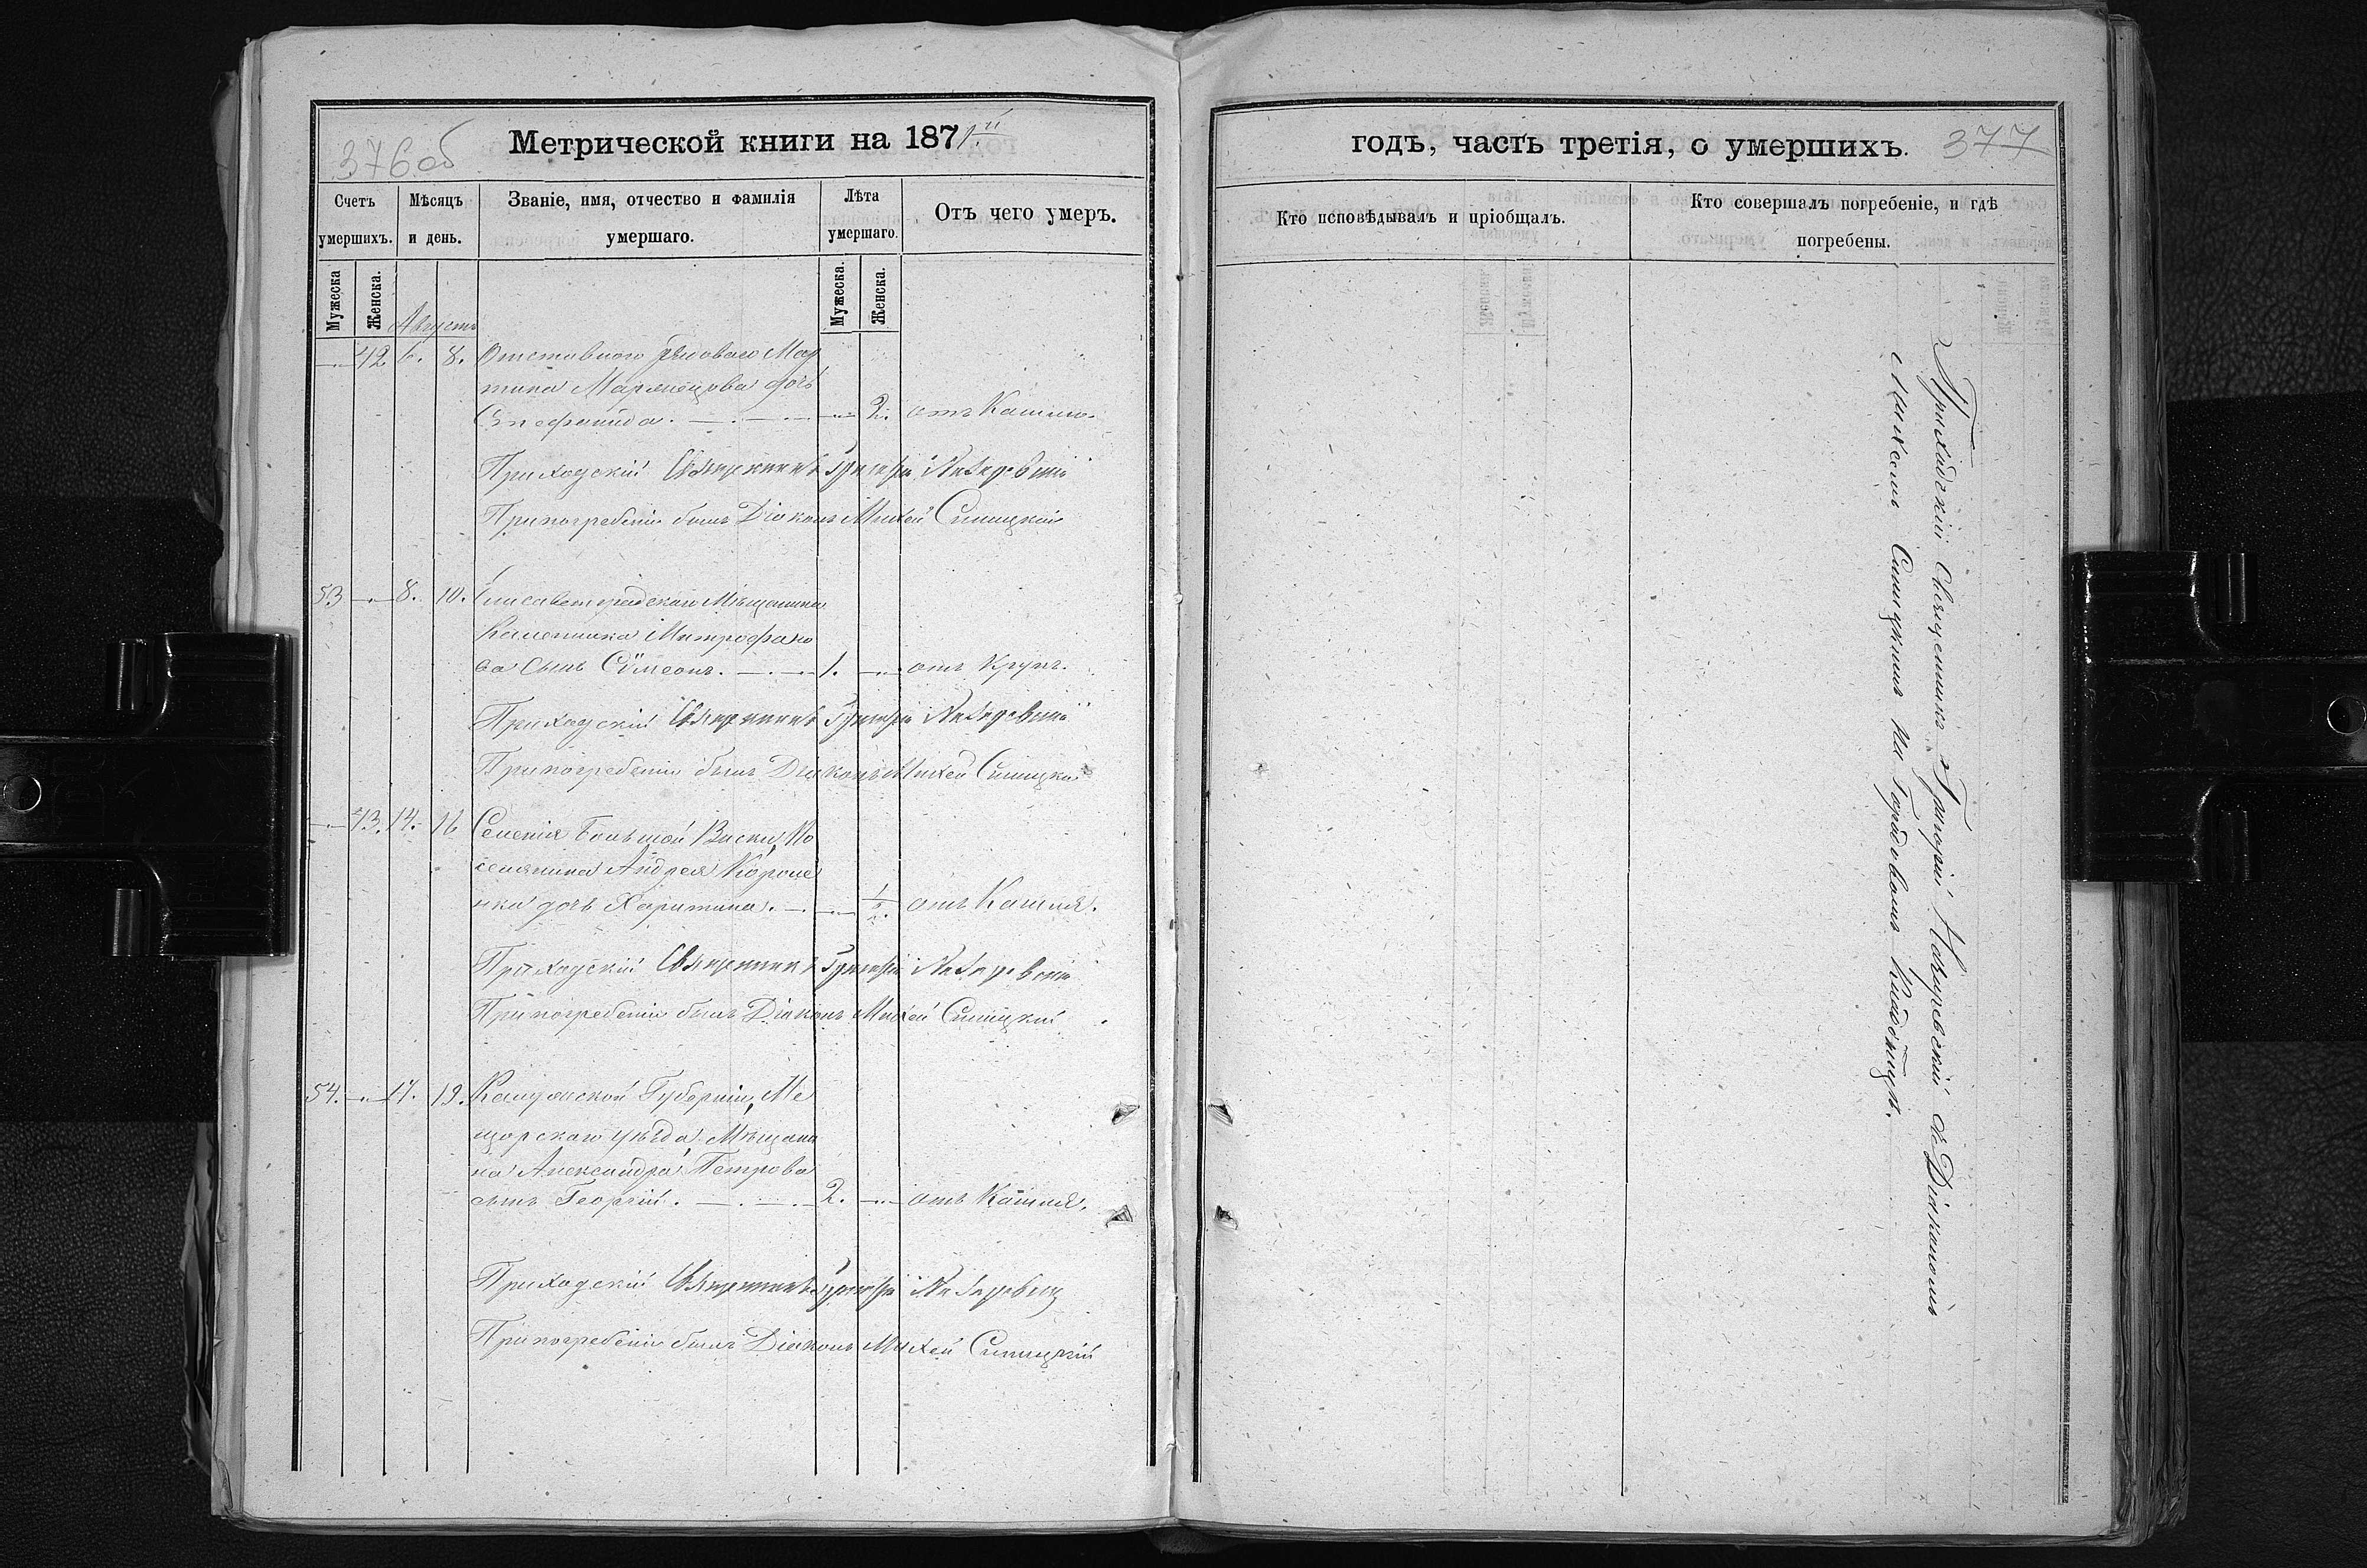 376об
Метрической книги на 1871й
Счетъ умершихъ.
Мѣсяцъ и день.
Званіе, имя, отчество и фамилія умершаго.
Лѣта умершаго.
Отъ чего умеръ.
Мужеска
Женска.
Мужеска.
Женска.
Августъ
42 6. 8. Отставного рядоваго Мар
тина дочь
Стефанида. 2. отъ Кашля.
Приходскій Священникъ Григорій
При погребеніи былъ Діаконъ Михей Синицкій
53 8. 10. Елисаветградскаго Мѣщанина
Митрофано
ва сынъ Сѵмеонъ. 1. отъ Крупъ.
Приходскій Священникъ Григорій
При погребеніи былъ Діаконъ Михей Синицкій
43. 14. 16 Селенія Большой Виски, По
селянина Андрея Короле
нка дочь Харитина. 1/2. отъ Кашля.
Приходскій Священникъ Григорій
При погребеніи былъ Діаконъ Михей Синицкій
54. 17. 19. Калужской Губерніи, Ме
щорскаго уѣзда, Мѣщани
на Александра Петрова
сынъ Георгій. 2. отъ Кашля.
Приходскій Священникъ Григорій
При погребеніи былъ Діаконъ Михей Синицкій
годъ, часть третія, о умершихъ.
377
Кто исповѣдывалъ и пріобщалъ.
Кто совершалъ погребеніе, и гдѣ погребены.
Приходскій Священникъ Григорій съ Діакономъ
Михеемъ Синицкимъ на Городовомъ Кладбищѣ.